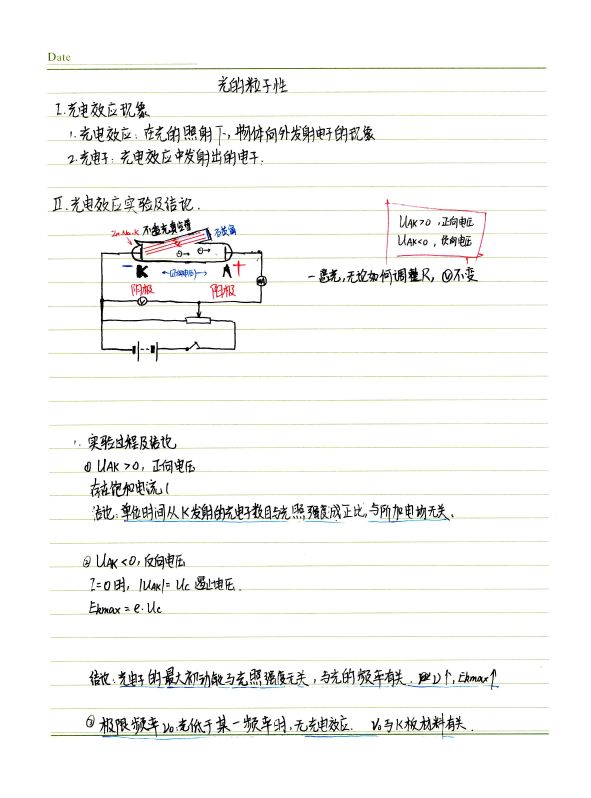 Date
光的粒子性
I.光电效应现象
1.光电效应:在光的照射下,物体向外发射电子的现象
2.光电子:光电效应中发射出的电子.
II.光电效应实验及结论.
不透光真空管
石英窗
UAK>0,正向电压
UAK<0,反向电压
K
(正向电压)
A
阴极
阳极
V
mA
无论如何调整R,
不变
1.实验过程及结论
① UAK>0,正向电压
存在饱和电流
结论:单位时间从K发射的光电子数目与光照强度成正比,与所加电场无关.
② UAK<0,反向电压
I=0时,|UAK|=Uc 遏止电压.
Ekmax=e·Uc
结论:光电子的最大初动能与光照强度无关,与光的频率有关. ν↑,Ekmax↑
③ 极限频率ν0:光低于某一频率时,无光电效应. ν0与K极材料有关.